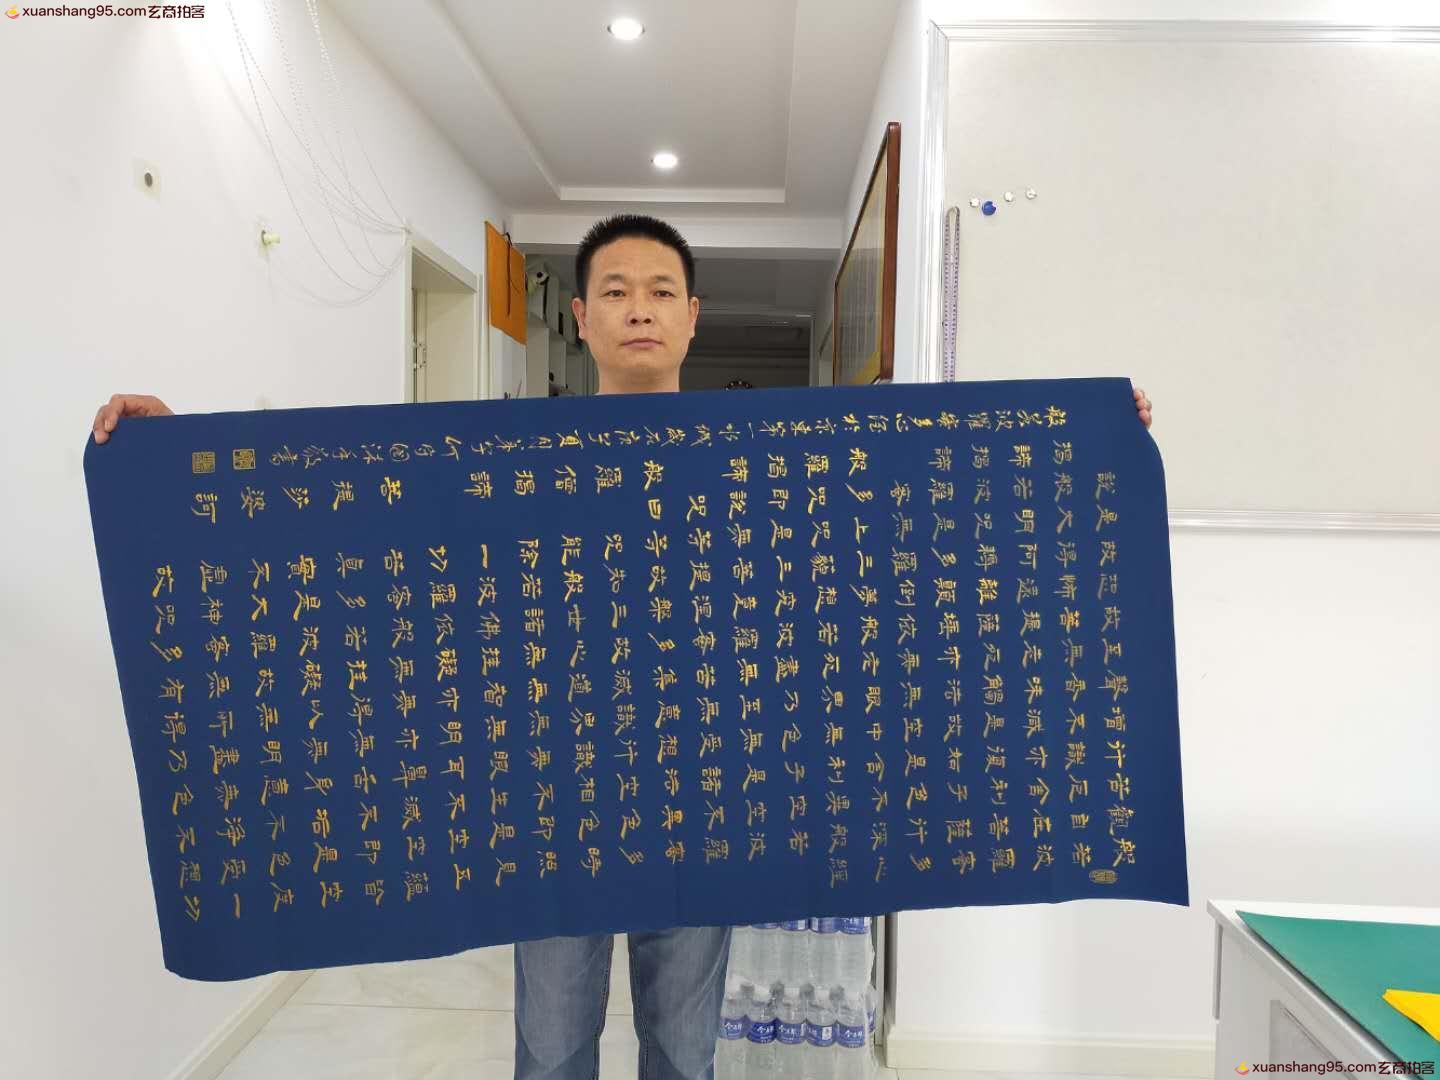 xuanshang95.com玄商拍客
般若波羅蜜多心經
觀自在菩薩行深般若波羅蜜多時照見五蘊皆空度一切
苦厄舍利子色不異空空不異色色即是空空即是色受想
行識亦復如是舍利子是諸法空相不生不滅不垢不淨不
增不減是故空中無色無受想行識無眼耳鼻舌身意無色
聲香味觸法無眼界乃至無意識界無無明亦無無明盡乃
至無老死亦無老死盡無苦集滅道無智亦無得以無所得
故菩提薩埵依般若波羅蜜多故心無罣礙無罣礙故無有
恐怖遠離顛倒夢想究竟涅槃三世諸佛依般若波羅蜜多
故得阿耨多羅三藐三菩提故知般若波羅蜜多是大神咒
是大明咒是無上咒是無等等咒能除一切苦真實不虛故
說般若波羅蜜多咒即說咒曰
揭諦揭諦般羅揭諦般羅僧揭諦菩提莎婆訶
般若波羅蜜多心經
xuanshang95.com玄商拍客